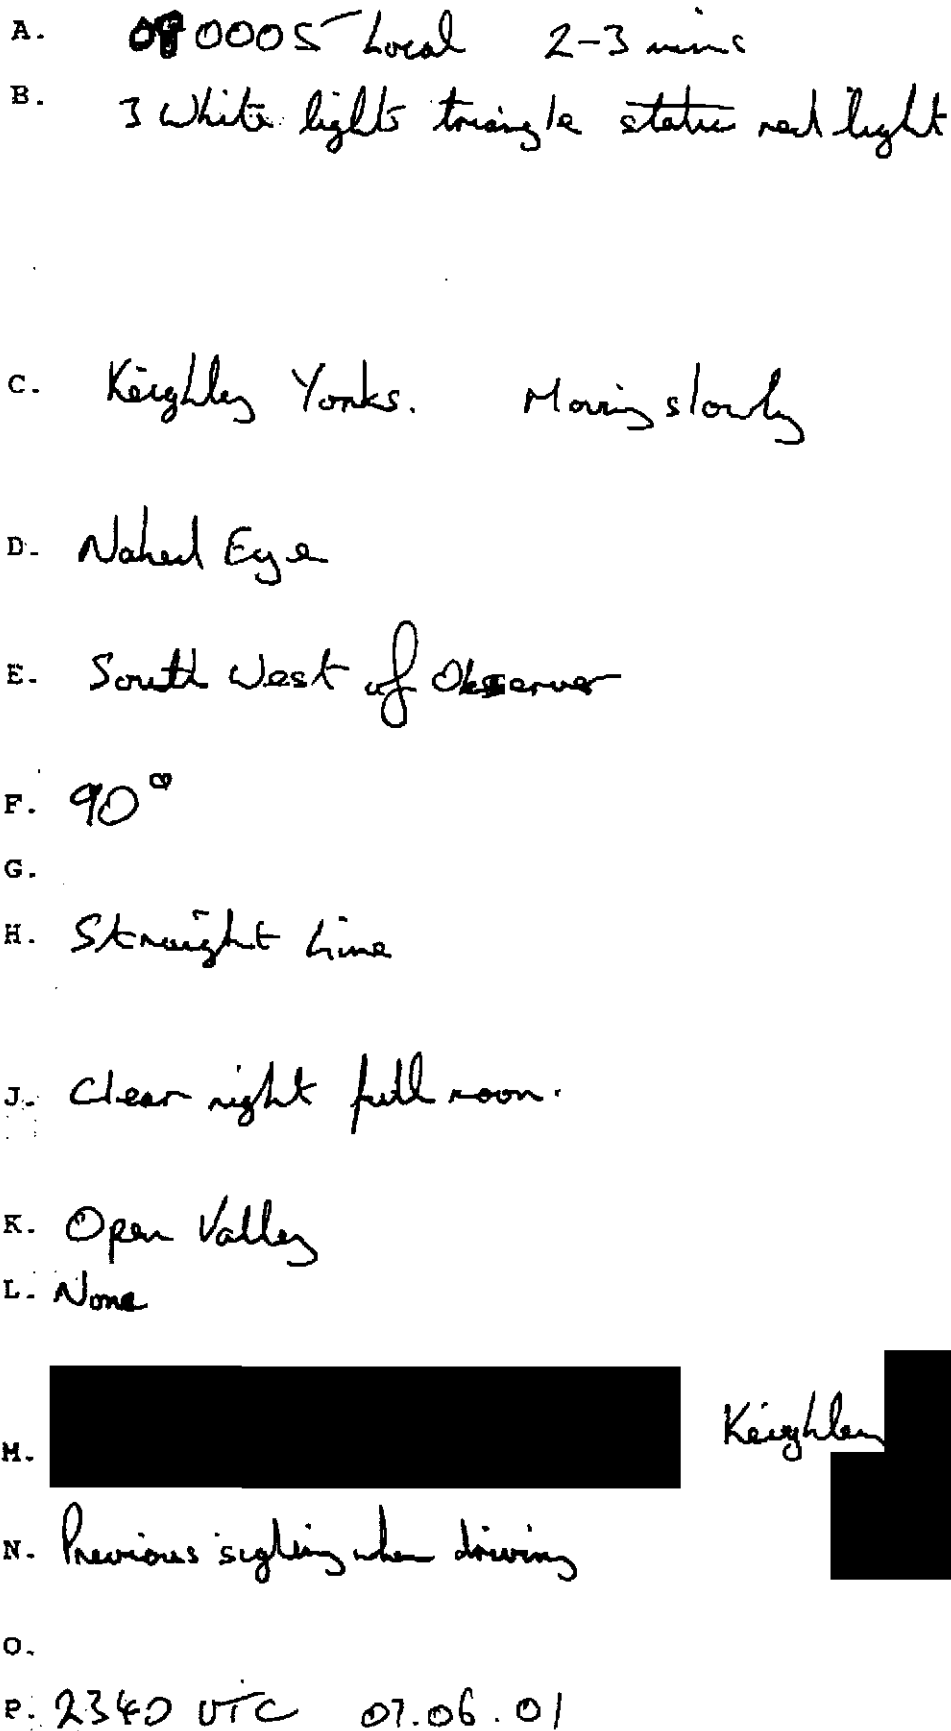 A. 080005 Local 2-3 mins
B. 3 White lights triangle static red light
C. Keighley Yorks. Moving slowly
D. Naked Eye
E. South West of Observer
F. 90°
G.
H. Straight Line
J. Clear night full moon.
K. Open Valley
L. None
M. Keighley
N. Previous sighting when driving
O.
P. 2340 UTC 07.06.01